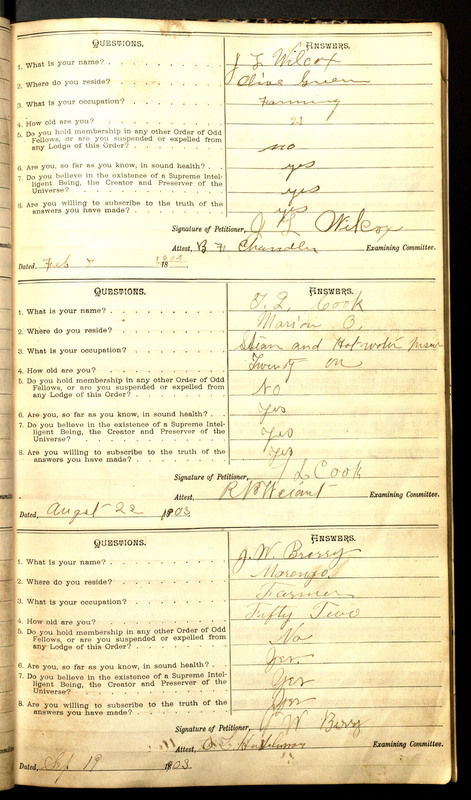 QUESTIONS. ANSWERS.
1. What is your name? J L Wilcox
2. Where do you reside? Olive Green
3. What is your occupation? Farming
4. How old are you? 21
5. Do you hold membership in any other Order of Odd
Fellows, or are you suspended or expelled from
any Lodge of this Order? no
6. Are you, so far as you know, in sound health? yes
7. Do you believe in the existence of a Supreme Intel-
ligent Being, the Creator and Preserver of the
Universe? yes
8. Are you willing to subscribe to the truth of the
answers you have made? yes
Signature of Petitioner, J L Wilcox
Attest, B F Chandler Examining Committee.
Dated, Feb 1903
QUESTIONS. ANSWERS.
1. What is your name? T. L. Cook
2. Where do you reside? Marion O.
3. What is your occupation? Steam and Hot water
4. How old are you? Twenty on
5. Do you hold membership in any other Order of Odd
Fellows, or are you suspended or expelled from
any Lodge of this Order? No
6. Are you, so far as you know, in sound health? Yes
7. Do you believe in the existence of a Supreme Intel-
ligent Being, the Creator and Preserver of the
Universe? Yes
8. Are you willing to subscribe to the truth of the
answers you have made? Yes
Signature of Petitioner, L Cook
Attest, Weiant Examining Committee.
Dated, Augst 22 1903
QUESTIONS. ANSWERS.
1. What is your name? J. W.
2. Where do you reside? Marengo.
3. What is your occupation? Farmer
4. How old are you? Fifty Two
5. Do you hold membership in any other Order of Odd
Fellows, or are you suspended or expelled from
any Lodge of this Order? No
6. Are you, so far as you know, in sound health? Yes.
7. Do you believe in the existence of a Supreme Intel-
ligent Being, the Creator and Preserver of the
Universe? Yes
8. Are you willing to subscribe to the truth of the
answers you have made? Yes
Signature of Petitioner, J W
Attest, Examining Committee.
Dated, Sep 19 1903